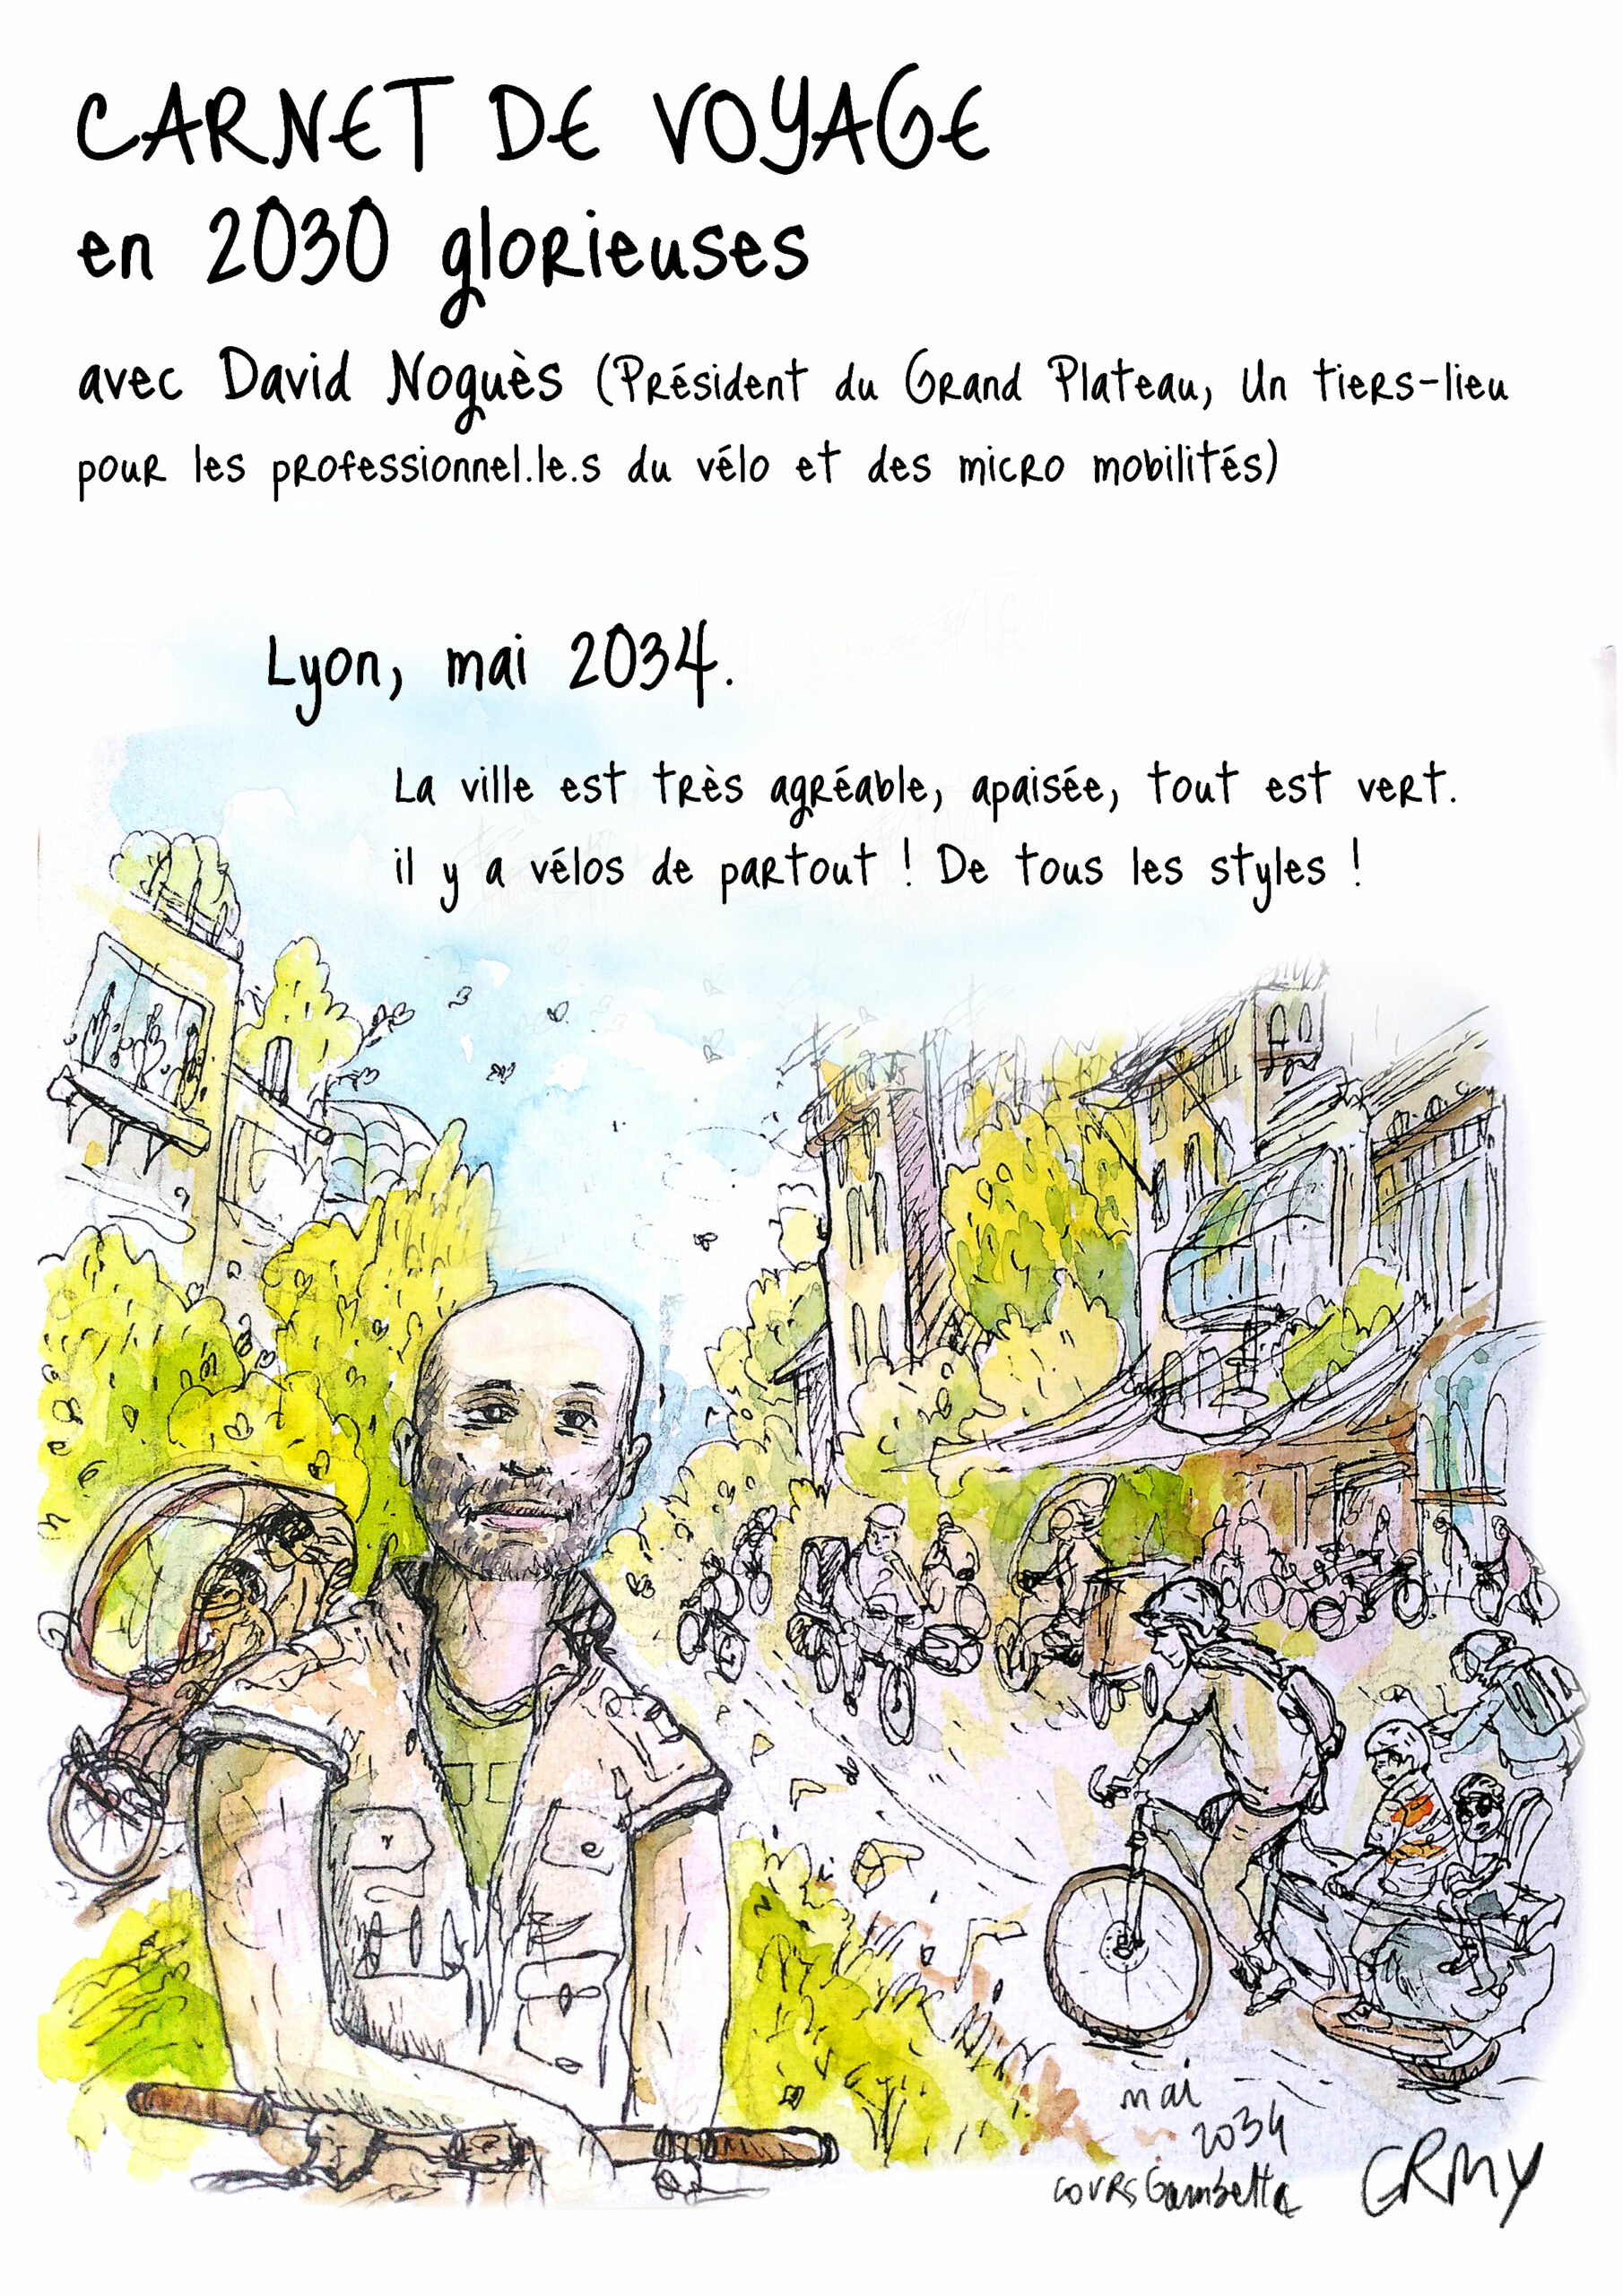 CARNET DE VOYAGE
en 2030 glorieuses
avec David Noguès (Président du Grand Plateau, Un tiers-lieu
pour les professionnel.le.s du vélo et des micro mobilités)
Lyon, mai 2034.
La ville est très agréable, apaisée, tout est vert.
il y a vélos de partout ! De tous les styles !
mai
2034
cours Gambetta
GRMY